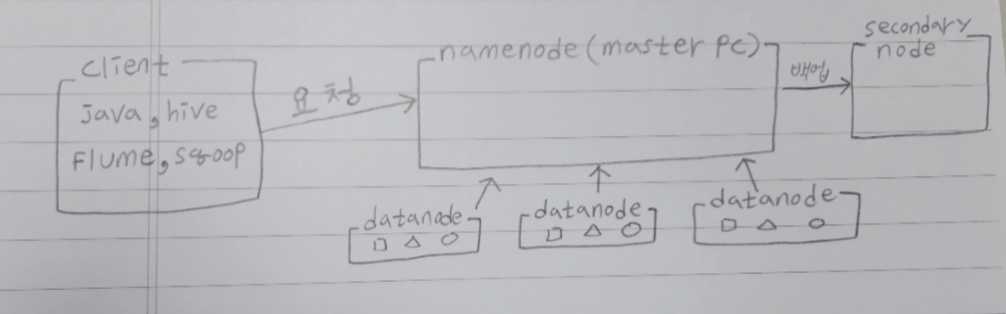 client
java, hive
flume, sqoop
요청
namenode (master pc)
secondary
node
datanode
datanode
datanode